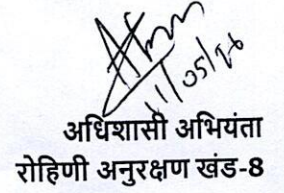 11/05/26
अधिशासी अभियंता
रोहिणी अनुरक्षण खंड-8